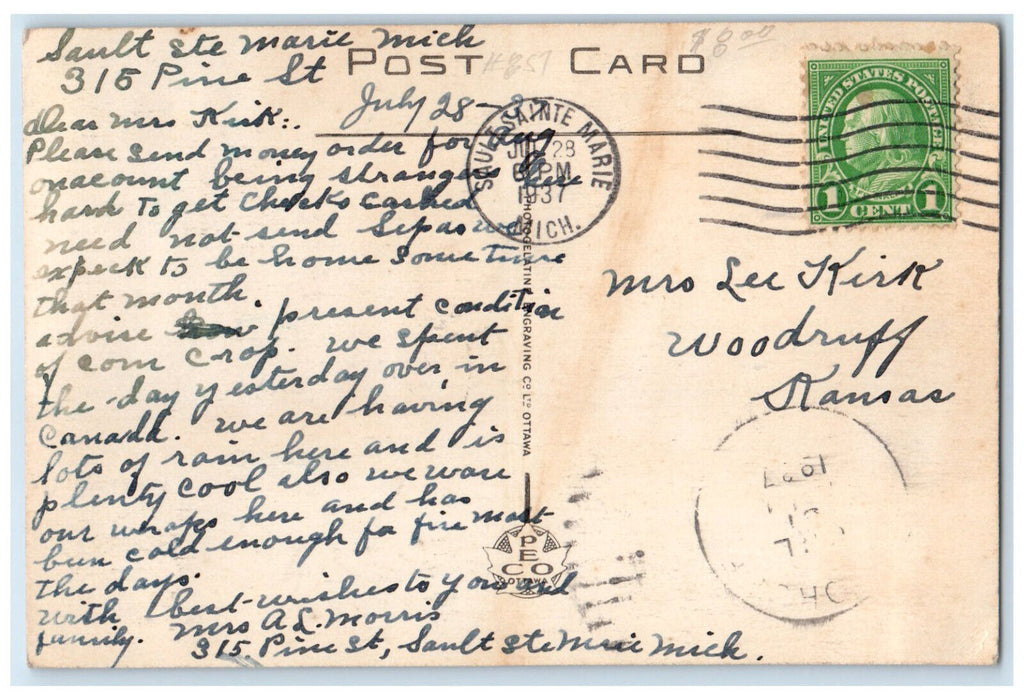 Sault Ste Marie Mich
315 Pine St
POST CARD
#857
$6.00
July 28 -
Dear Mrs Kirk:.
Please send money order for Aug
onaccount being strangers here
hard to get Checks cashed
need not send Sep as we
expeck to be home some time
that month.
advise present condition
of corn crop. we spent
the day yesterday over in
Canada. we are having
lots of rain here and is
plenty cool also we ware
our wraps here and has
bun cold enough fo fire most
the days.
with best-wishes to you and
family. Mrs A L. Morris
315 Pine St, Sault Ste Marie Mich.
SAULT SAINTE MARIE
JUL 28
PM
1937
MICH.
UNITED STATES POSTAGE
1 CENT 1
PHOTOGELATINE ENGRAVING CO. LTD. OTTAWA
PECO
OTTAWA
Mrs Lee Kirk
Woodruff
Kansas
1937